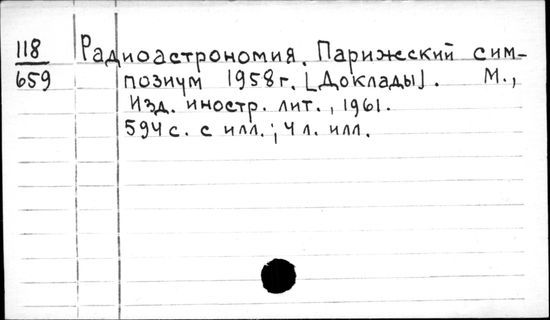 118 Радиоастрономия. Парижский сим-
659 позиум 1958г. [Доклады]. М.,
Изд. иностр. лит., 1961.
594с. с илл.; 4л. илл.